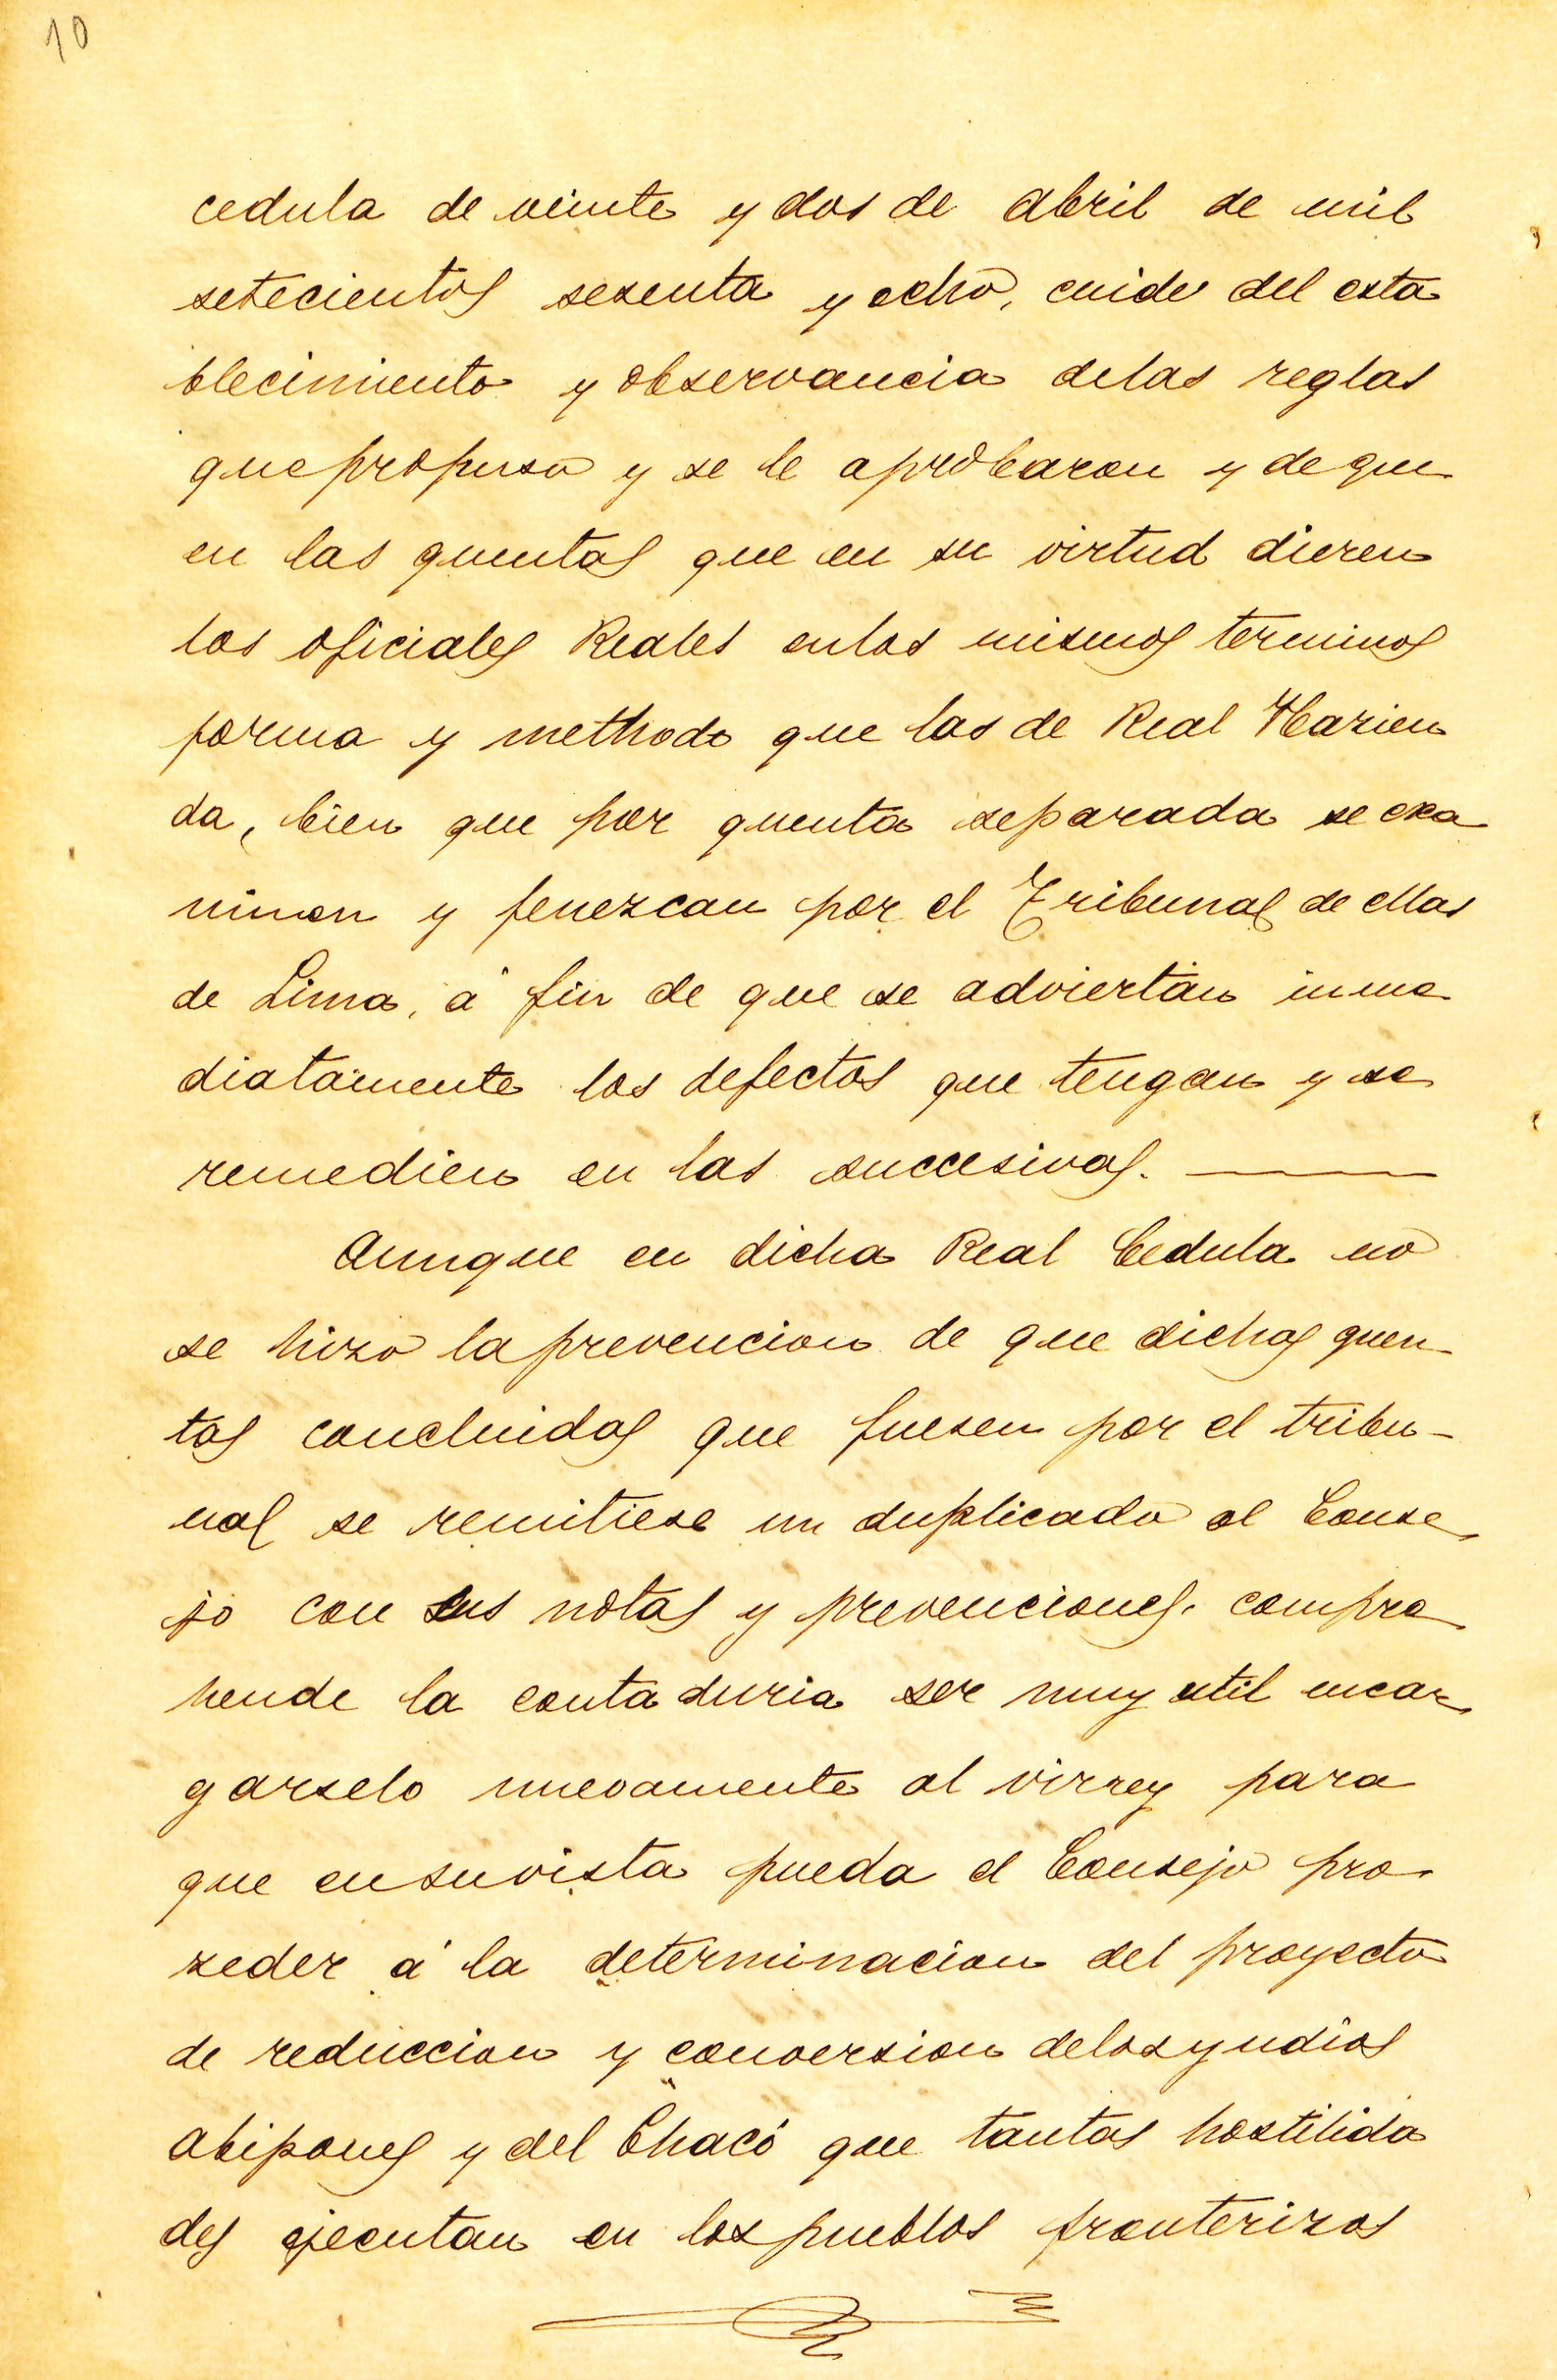 10
cedula de veinte y dos de Abril de mil
setecientos sesenta y ocho, cuide del esta
blecimiento y observancia delas reglas
que propuso y se le aprobaron y de que
en las quentas que en su virtud dieren
los oficiales Reales enlos mismos terminos
forma y methodo que las de Real Hazien
da, bien que por quenta separada se exa
minen y fenezcan por el Tribunal de ellas
de Lima, á fin de que se adviertan inme
diatamente los defectos que tengan y se
remedien en las succesivas.
Aunque en dicha Real Cedula no
se hizo la prevencion de que dichas quen-
tas concluidas que fuesen por el tribu-
nal se remitiese un duplicado al Conse
jo con sus notas y prevenciones, compre
hende la contaduria ser muy util encar
garselo nuevamente al virrey para
que ensuvista pueda el Consejo pro
zeder á la determinacion del proyecto
de reduccion y conversion delosyndios
abipones y del Chacó que tantas hostilida
des ejecutan en los pueblos fronterizos